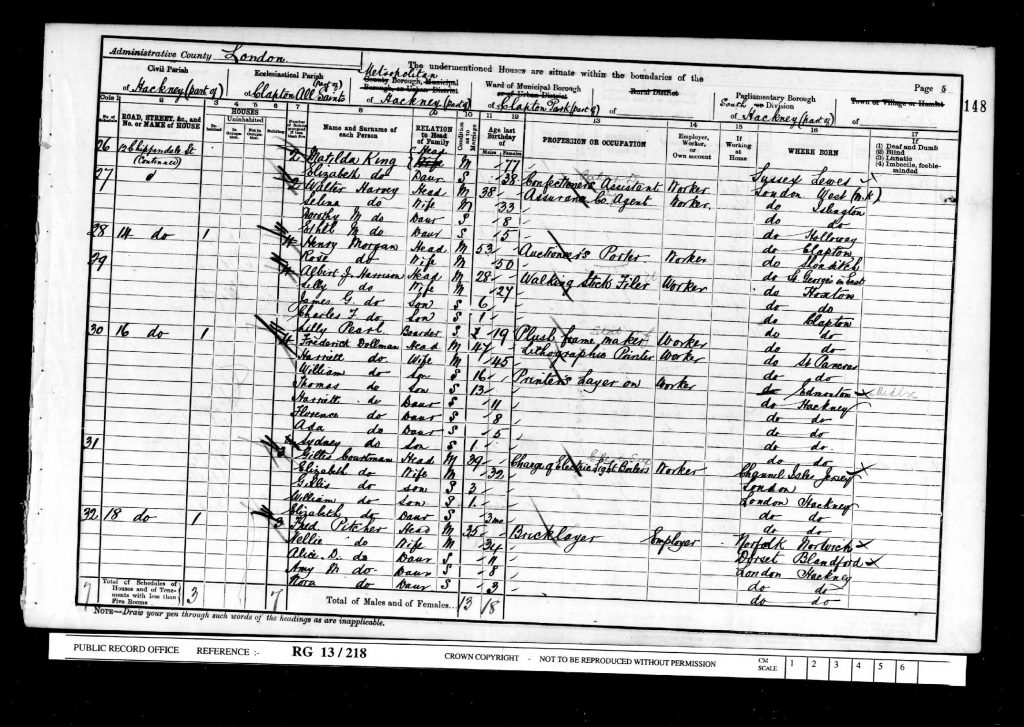 Administrative County London
The undermentioned Houses are situate within the boundaries of the
Page 5
148
Civil Parish
of Hackney (part of)
Ecclesiastical Parish
of Clapton All Saints
Metropolitan
County Borough, Municipal
Borough, or Urban District
of Hackney (part of)
Ward of Municipal Borough
or of Urban District
of Clapton Park (part of)
Rural District
of
Parliamentary Borough
South or Division
of Hackney (part of)
Town or Village or Hamlet
of
Cols 1 2 3 4 5 6 7 8 9 10 11 12 13 14 15 16 17
No. of Schedule
ROAD, STREET, &c., and No. or NAME of HOUSE
HOUSES
Inhabited
Uninhabited
In Occupation
Not in Occupation
Building
Number of Rooms occupied if less than five
Name and Surname of each Person
RELATION to Head of Family
Condition as to Marriage
Age last Birthday of
Males
Females
PROFESSION OR OCCUPATION
Employer, Worker, or Own account
If Working at Home
WHERE BORN
(1) Deaf and Dumb
(2) Blind
(3) Lunatic
(4) Imbecile, feeble-minded
26 Chippendale St (Continued) 2 Matilda King Head M 77 Sussex Lewes
Elizabeth do Daur S 38 Confectioners Assistant Worker London West (N.K.)
27 2 Walter Harvey Head M 38 Assurance Co. Agent Worker do Islington
Selina do Wife M 33 do do
Dorothy M do Daur S 8 do Holloway
Ethel M do Daur S 5 do Clapton
28 14 do 1 4 Henry Morgan Head M 53 Auctioner's Porter Worker do Shoreditch
Rose do Wife M 50 do St Georges in East
29 4 Albert J. Harrison Head M 28 Walking Stick Filer Worker do Hoxton
Lilly do Wife M 27 do do
James G. do Son S 6 do Clapton
Charles F. do Son S 1 do do
Lilly Pearl Boarder S 19 Plush frame maker Worker do do
30 16 do 1 4 Frederick Dollman Head M 47 Lithographic Printer Worker do St Pancras
Harriett do Wife M 45 do do
William do Son S 16 Printers Layer on Worker Edmonton
Thomas do Son S 13 do Hackney
Harriett do Daur S 11 do do
Florence do Daur S 8 do do
Ada do Daur S 5 do do
Sydney do Son S 1 do do
31 3 Gillis Courtman Head M 39 Charge of Electric Light Boilers Worker Channel Isles Jersey
Elizabeth do Wife M 32 London
Gillis do Son S 3 London Hackney
William do Son S 1 do do
Elizabeth do Daur S 3mo do do
32 18 do 1 3 Fred Pitcher Head M 35 Bricklayer Employer Norfolk Norwich
Nellie do Wife M 34 Dorset Blandford
Alice D. do Daur S 11 London Hackney
Amy M do Daur S 8 do do
Nora do Daur S 3 do do
7 Total of Schedules of Houses and of Tenements with less than Five Rooms 3 7
Total of Males and of Females 13 18
NOTE—Draw your pen through such words of the headings as are inapplicable.
PUBLIC RECORD OFFICE REFERENCE :- RG 13/218 CROWN COPYRIGHT - NOT TO BE REPRODUCED WITHOUT PERMISSION CM SCALE 1 2 3 4 5 6